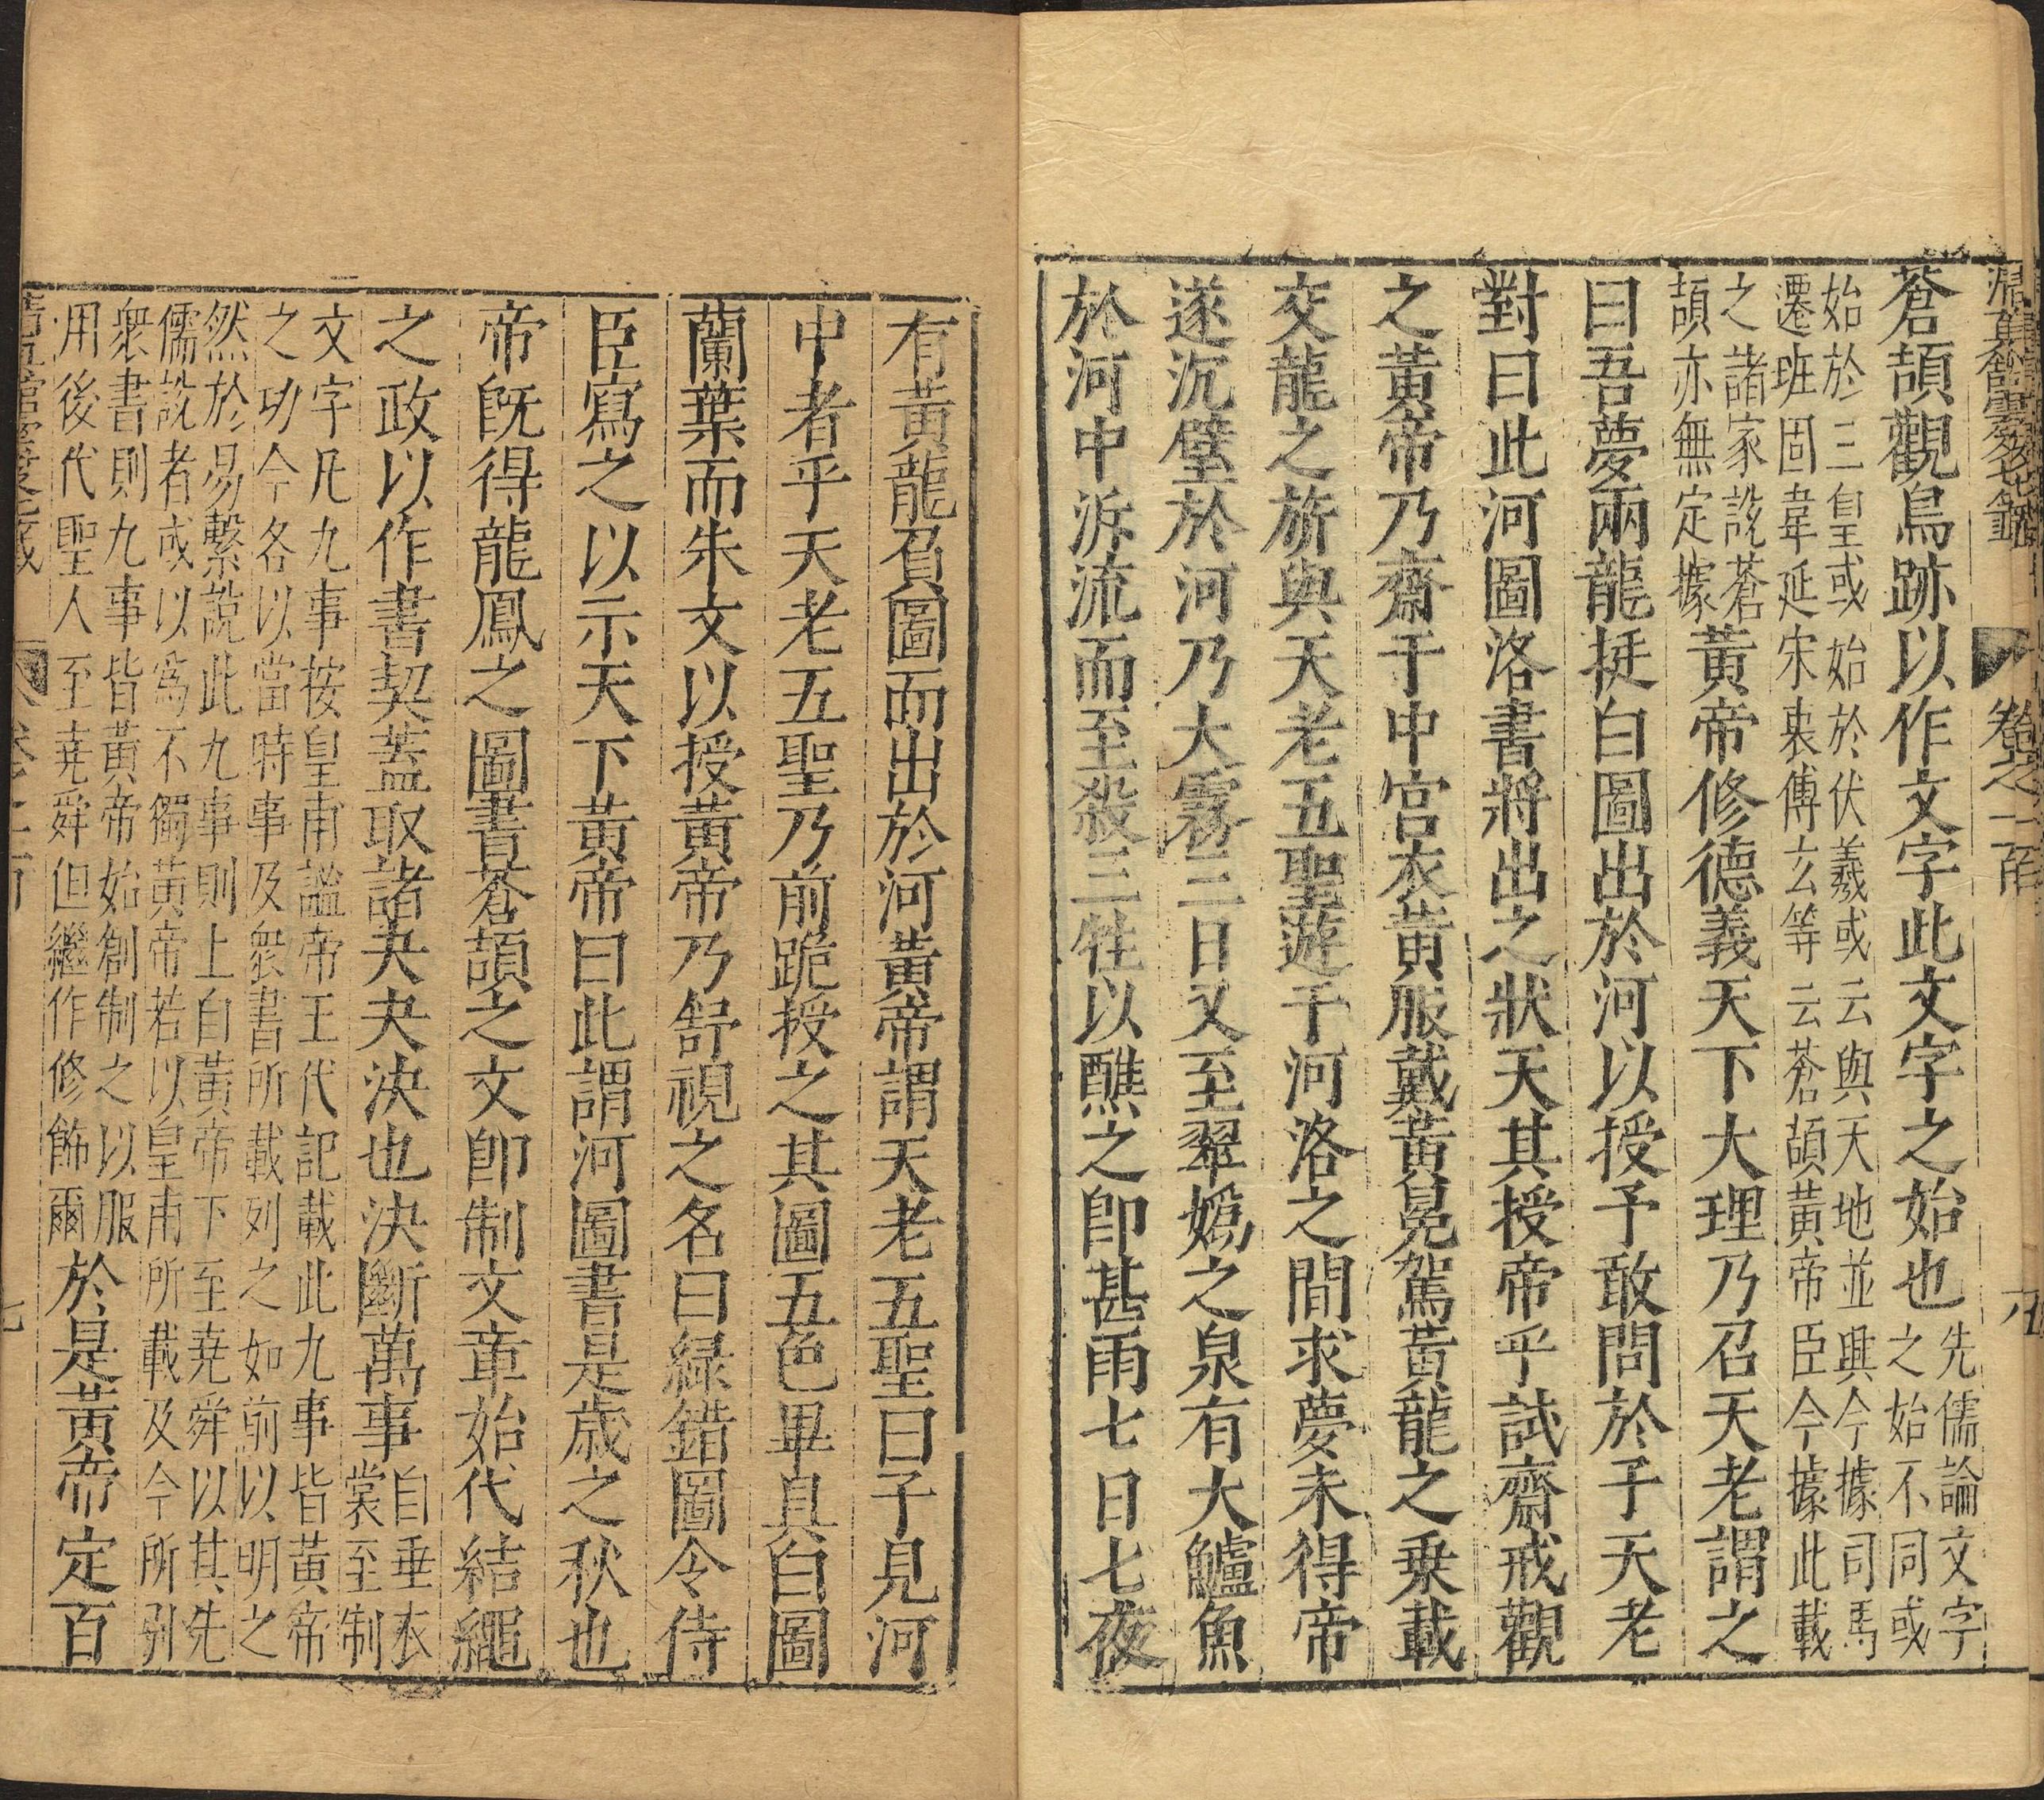 清真館雲笈七籤
卷之一百
蒼頡觀鳥跡以作文字此文字之始也先儒論文字
之始不同或
始於三皇或始於伏羲或云與天地並興今據司馬
遷班固韋延宋衷傅玄等云蒼頡黃帝臣今據此載
之諸家說蒼
頡亦無定據黃帝修德義天下大理乃召天老謂之
曰吾夢兩龍挺白圖出於河以授予敢問於子天老
對曰此河圖洛書將出之狀天其授帝乎試齋戒觀
之黃帝乃齋于中宮衣黃服戴黃冕駕黃龍之乗載
交龍之旂與天老五聖遊于河洛之間求夢未得帝
遂沉璧於河乃大霧三日又至翠嬀之泉有大鱸魚
於河中泝流而至殺三牲以醮之卽甚雨七日七夜
有黃龍負圖而出於河黃帝謂天老五聖曰子見河
中者乎天老五聖乃前跪授之其圖五色畢具白圖
蘭葉而朱文以授黃帝乃舒視之名曰緑錯圖令侍
臣寫之以示天下黃帝曰此謂河圖書是歳之秋也
帝旣得龍鳳之圖書蒼頡之文卽制文章始代結繩
之政以作書契蓋取諸夬夬決也決斷萬事自垂衣
裳至制
文字凡九事按皇甫謐帝王代記載此九事皆黃帝
之功今各以當時事及衆書所載列之如前以明之
然於易繫說此九事則上自黃帝下至堯舜以其先
儒說者或以爲不獨黃帝若以皇甫所載及今所引
衆書則九事皆黃帝始創制之以服
用後代聖人至堯舜但繼作修飾爾於是黃帝定百